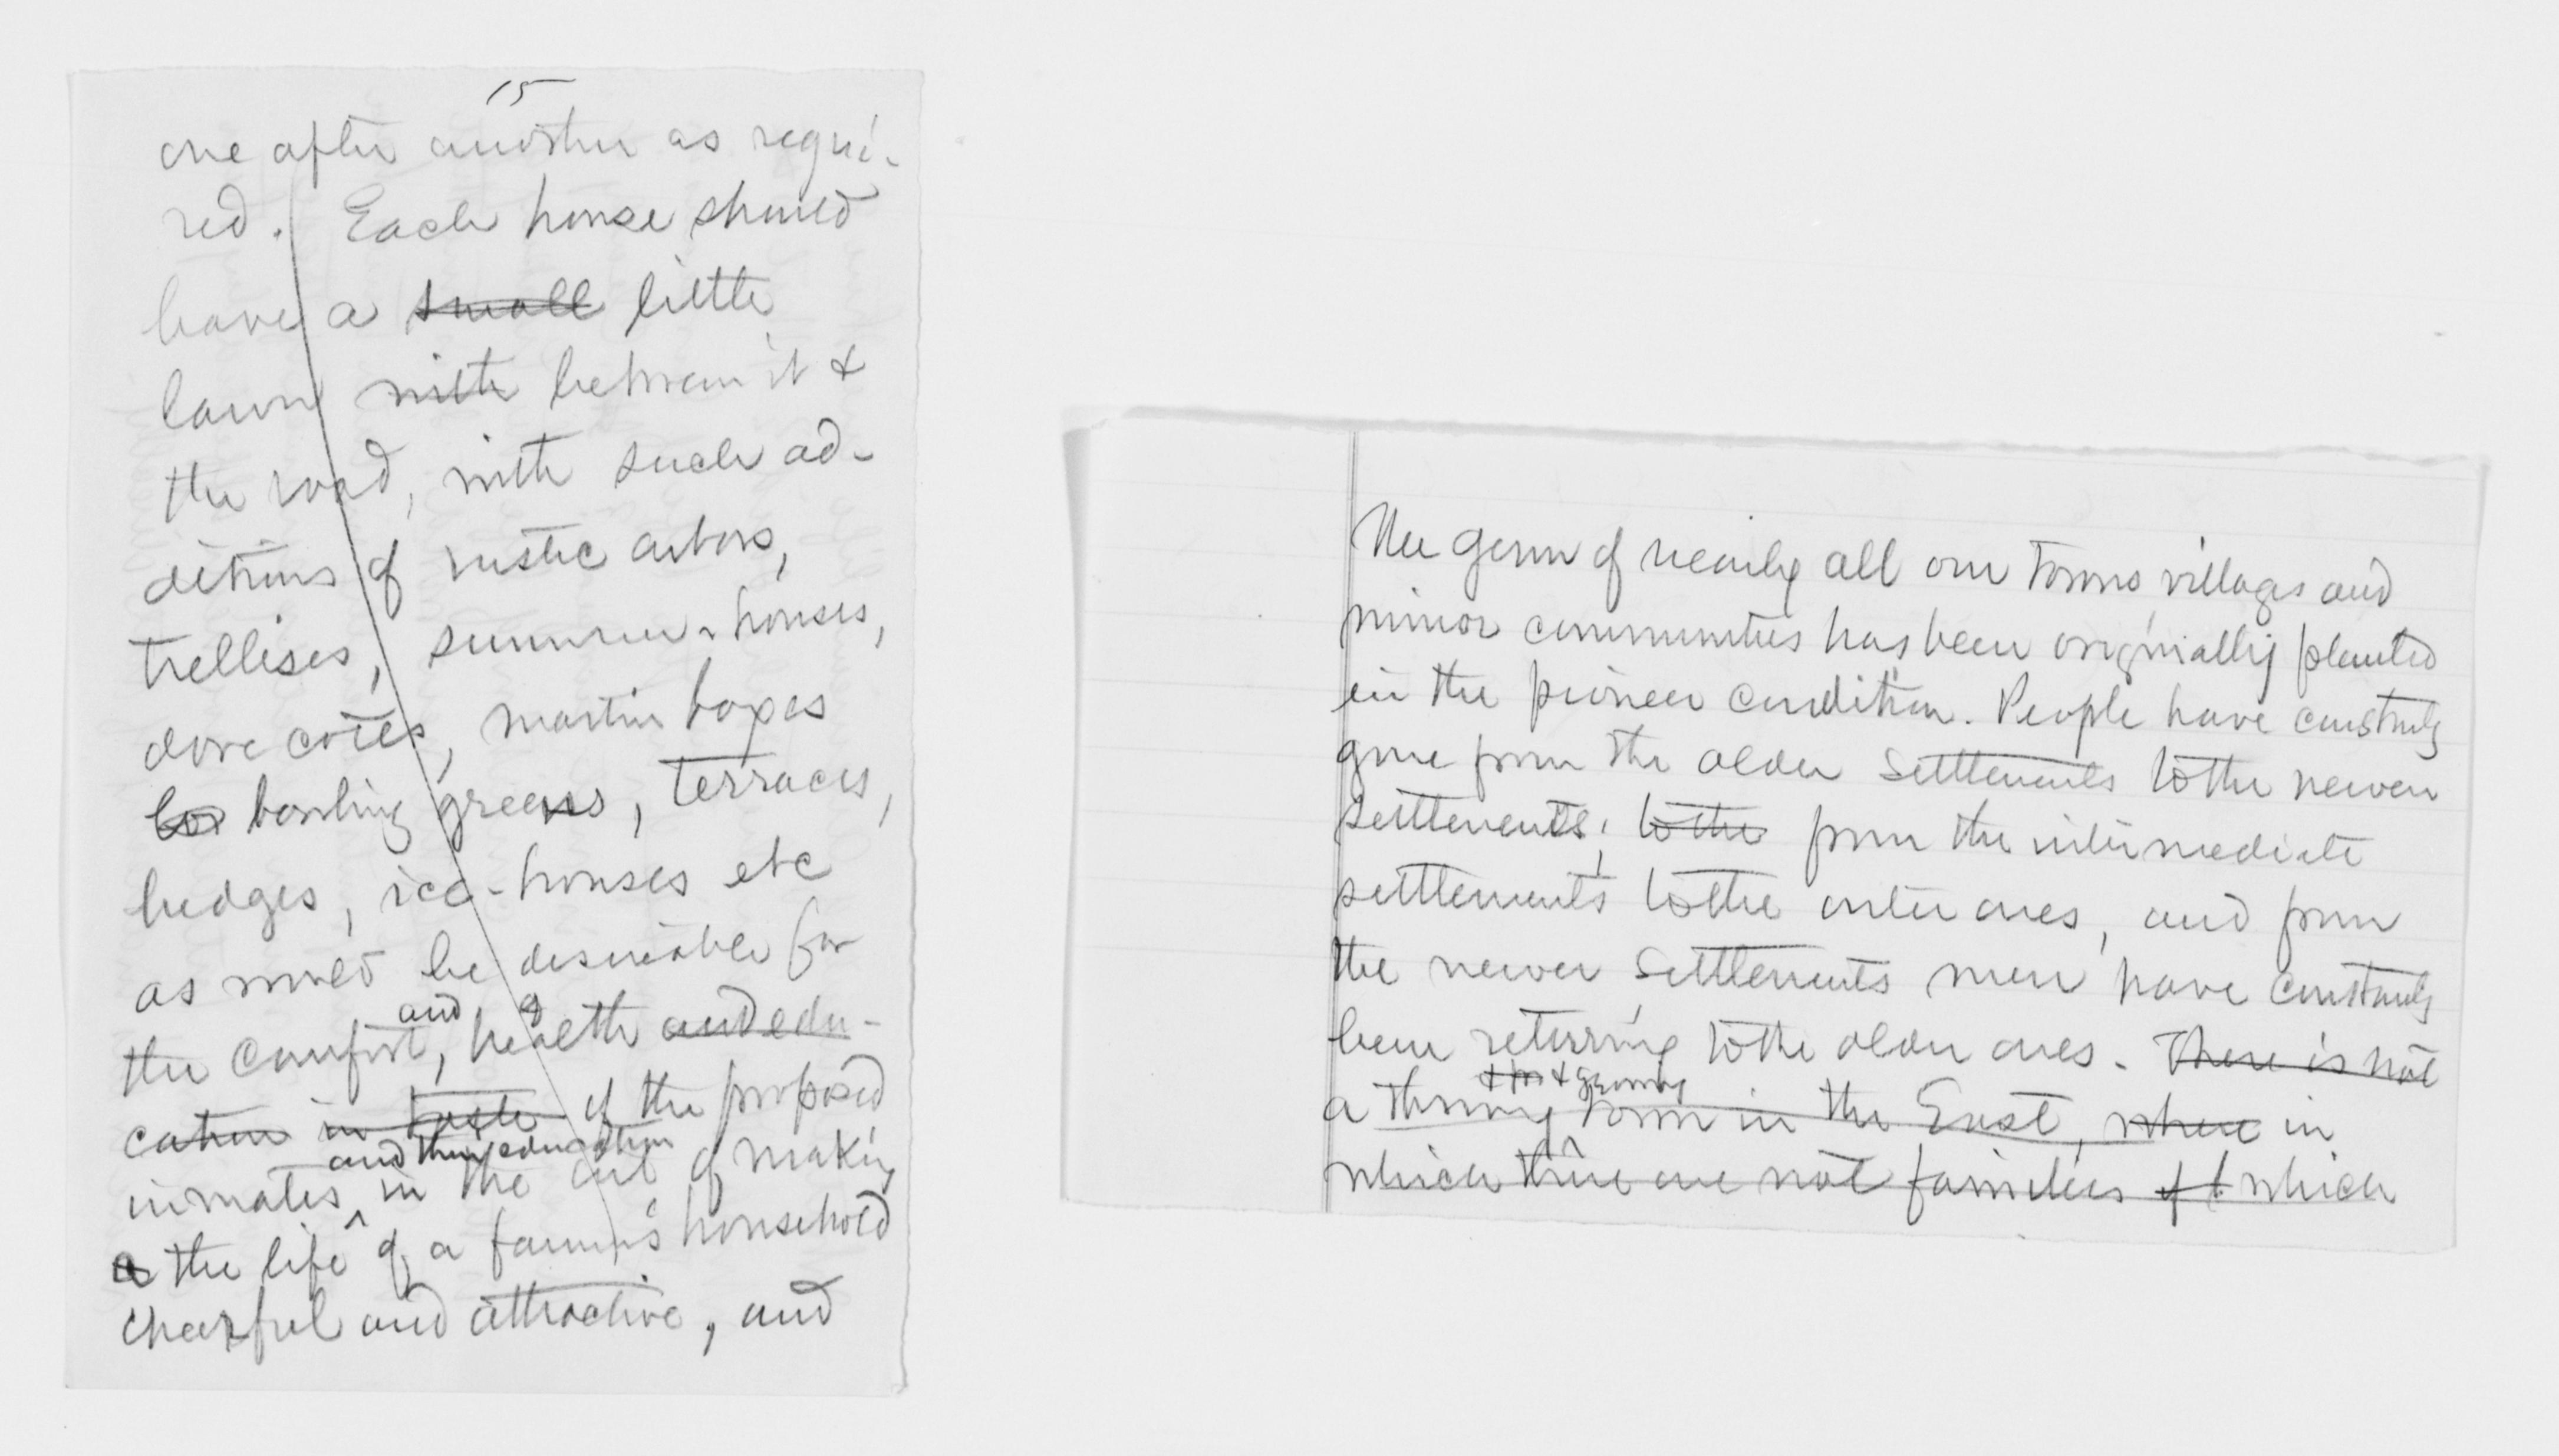 15
one after another as requi-
red. Each house should
have a small little
lawn with between it &
the road, with such ad-
ditions of rustic arbors,
trellises, summer-houses,
dove cotes, martin boxes
bo bowling greens, terraces,
hedges, ice-houses etc
as would be desirable for
and
the comfort, health and edu-
cation in taste of the proposed
and their education
inmates in the art of making
the life of a farmer's household
chearful and attractive, and
The germ of nearly all our towns villages and
minor communities has been originally planted
in the pioneer condition. People have constantly
gone from the older settlements to the newer
settlements, to the from the intermediate
settlements to the outer ones, and from
the newer settlements men have constantly
been returning to the older ones. There is not
& growing
a thriving town in the East, where in
which there are not families of which